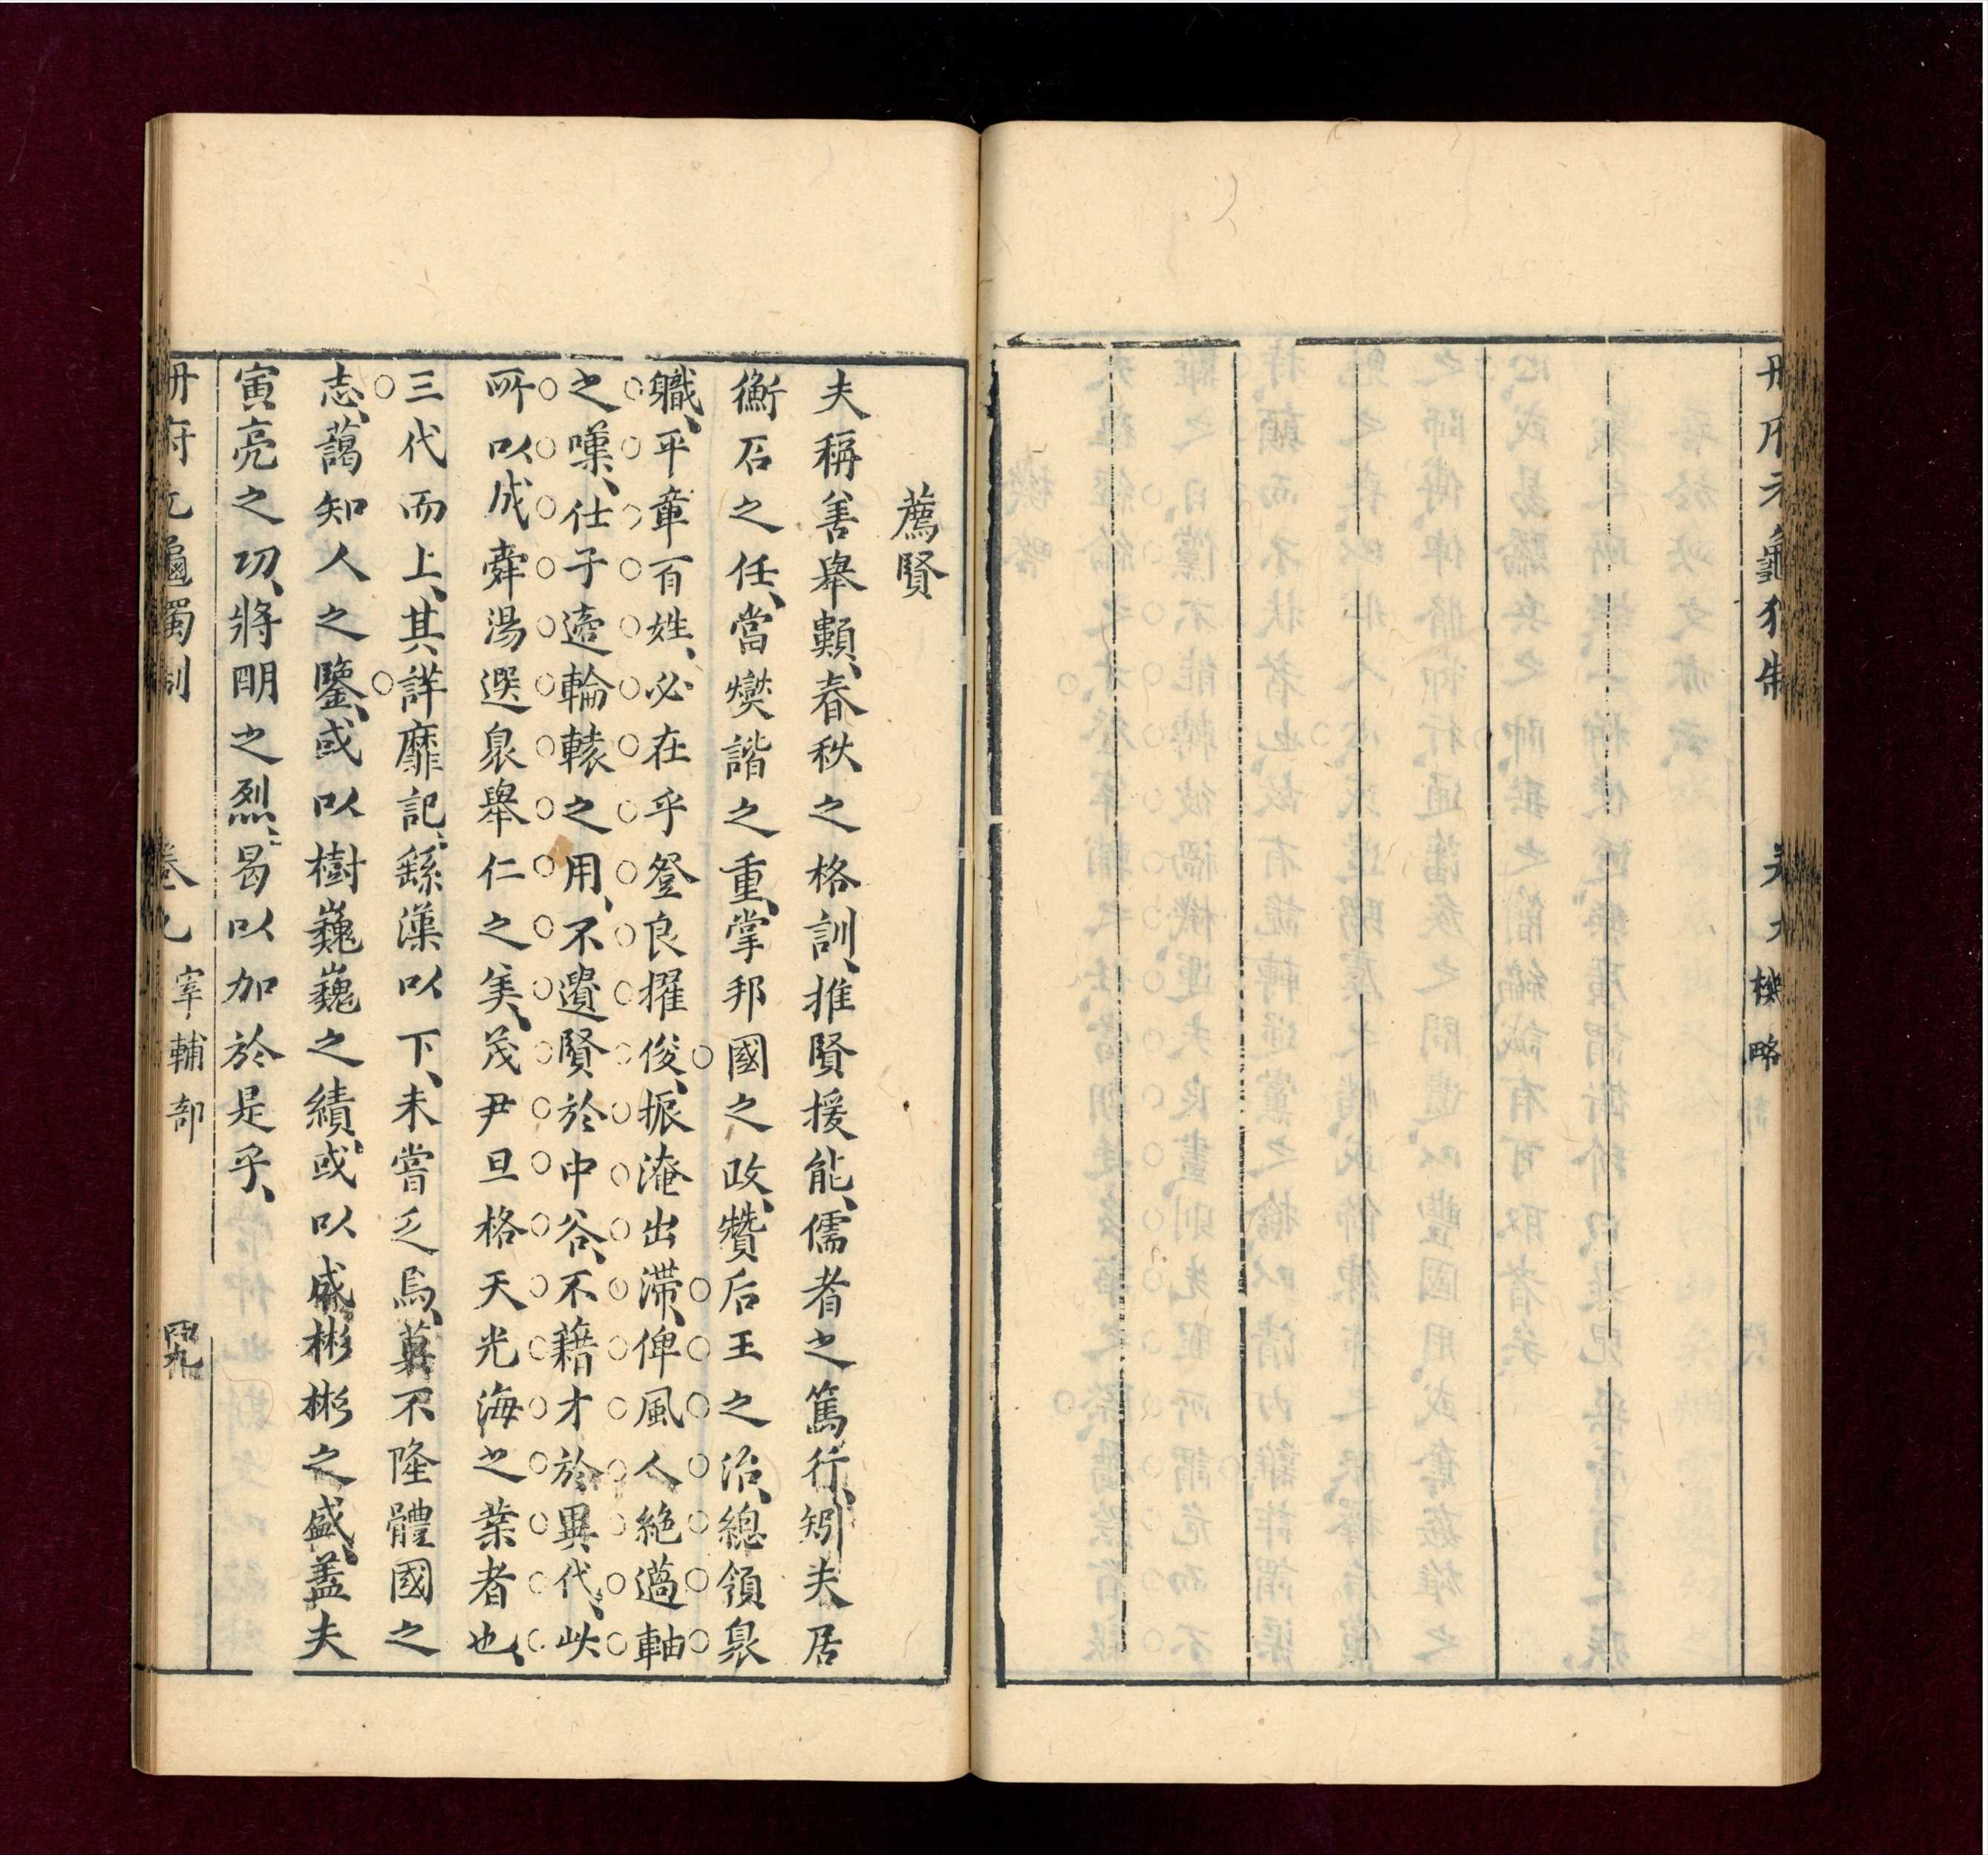 冊府元龜獨制
卷九
機略
薦賢
夫稱善舉類、春秋之格訓、推賢援能、儒者之篤行、矧夫居
衡石之任、當燮諧之重、掌邦國之政、贊后王之治、總領衆
職、平章百姓、必在乎登良擢俊、振淹出滯、俾風人絶薖軸
之嘆、仕子適輪轅之用、不遺賢於中谷、不藉才於異代、此
所以成舜湯選衆舉仁之美、茂尹旦格天光海之業者也、
三代而上、其詳靡記、繇漢以下、未嘗乏焉、莫不隆體國之
志、藹知人之鑒、或以樹巍巍之績、或以成彬彬之盛、蓋夫
寅亮之功、將明之烈、曷以加於是乎、
冊府元龜獨制
卷九
宰輔部
四九